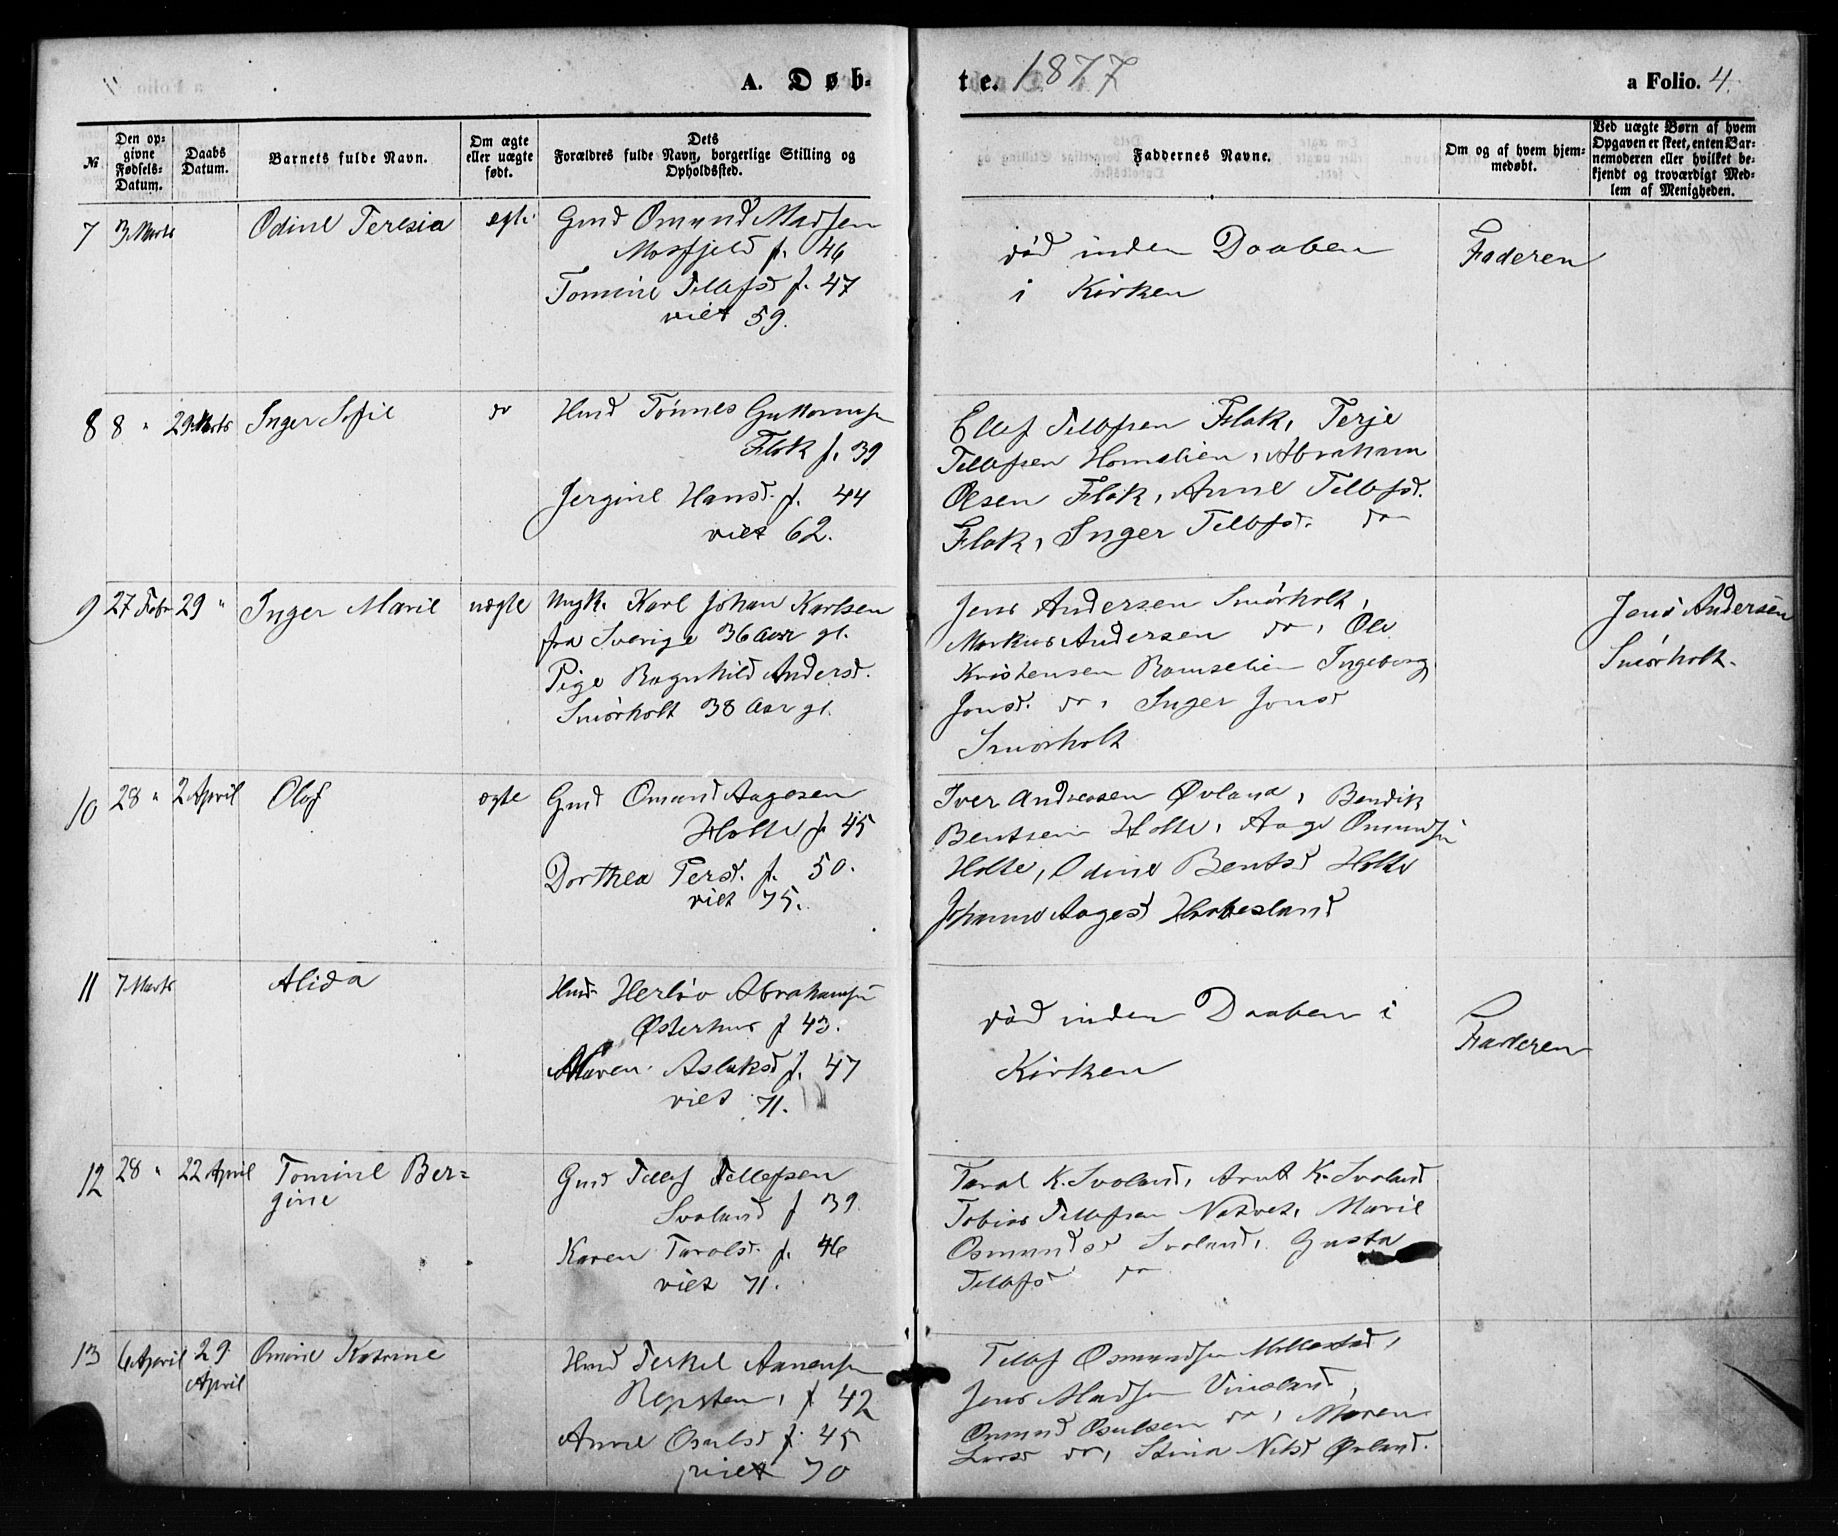 A. Døb-
te. 1877
a Folio. 4.
№
Den op-
givne
Fødsels-
Datum.
Daabs
Datum.
Barnets fulde Navn.
Om ægte
eller uægte
født.
Dets
Forældres fulde Navn, borgerlige Stilling og
Opholdssted.
Faddernes Navne.
Om og af hvem hjem-
medøbt.
Ved uægte Børn af hvem
Opgaven er skeet, enten Bar-
nemoderen eller hvilket be-
kjendt og troværdigt Med-
lem af Menigheden.
7 3 Marts Odine Teresia egte Gmd Omund Madsen
Mosfjeld f. 46
Tomine Tellefsd f. 47
viet 59.
død inden Daaben
i Kirken
Faderen
8 8 " 29 Marts Inger Sofie do Hmd Tønnes Guttormsen
Flak f. 39
Jergine Hansd. f. 44
viet 62.
Ellef Tellefsen Flak, Terje
Tellefsen Homelien, Abraham
Olsen Flak, Anne Tellefsd.
Flak, Inger Tellefsd. do
9 27 Febr 29 " Inger Marie uægte Ungk. Karl Johan Karlsen
fra Sverige 36 Aar gl.
Pige Ragnhild Andersd.
Smørholt 38 Aar gl.
Jens Andersen Smørholt,
Markus Andersen do, Ole
Kristensen Ramselien Ingeborg
Jonsd. do, Inger Jonsd
Smørholt
Jens Andersen
Smørholt.
10 28 " 2 April Olaf ægte Gmd Omund Aagesen
Holte f. 45
Dorthea Tersd. f. 50.
viet 75.
Iver Andreasen Øvland, Bendik
Bentsen Holte, Aage Omundsen
Holte, Odine Bentsd Holte
Johanne Aagesd Haabesland
11 7 Marts Alida Hmd Herløv Abrahamsen
Østerhus f 43.
Maren Aslaksd f. 47
viet 71.
død inden Daaben i
Kirken
Faderen
12 28 " 22 April Tomine Ber=
gine
Gmd Tellef Tellefsen
Svaland f 39.
Karen Taralsd. f. 46
viet 71.
Taral K. Svaland, Arnt K. Svaland
Tobias Tellefsen Natvet, Marie
Osmundsd Svaland, Gusta
Tellefsd do
13 6 April 29
April
Omine Katrine Hmd Terkel Aanensen
Repsten, f 42
Anne Osulsd f. 45
viet 70
Tellef Osmundsen Mollestad,
Jens Madsen Vinsland,
Omund Osulsen do, Maren
Larsd do, Stina Nilsd Øvland.